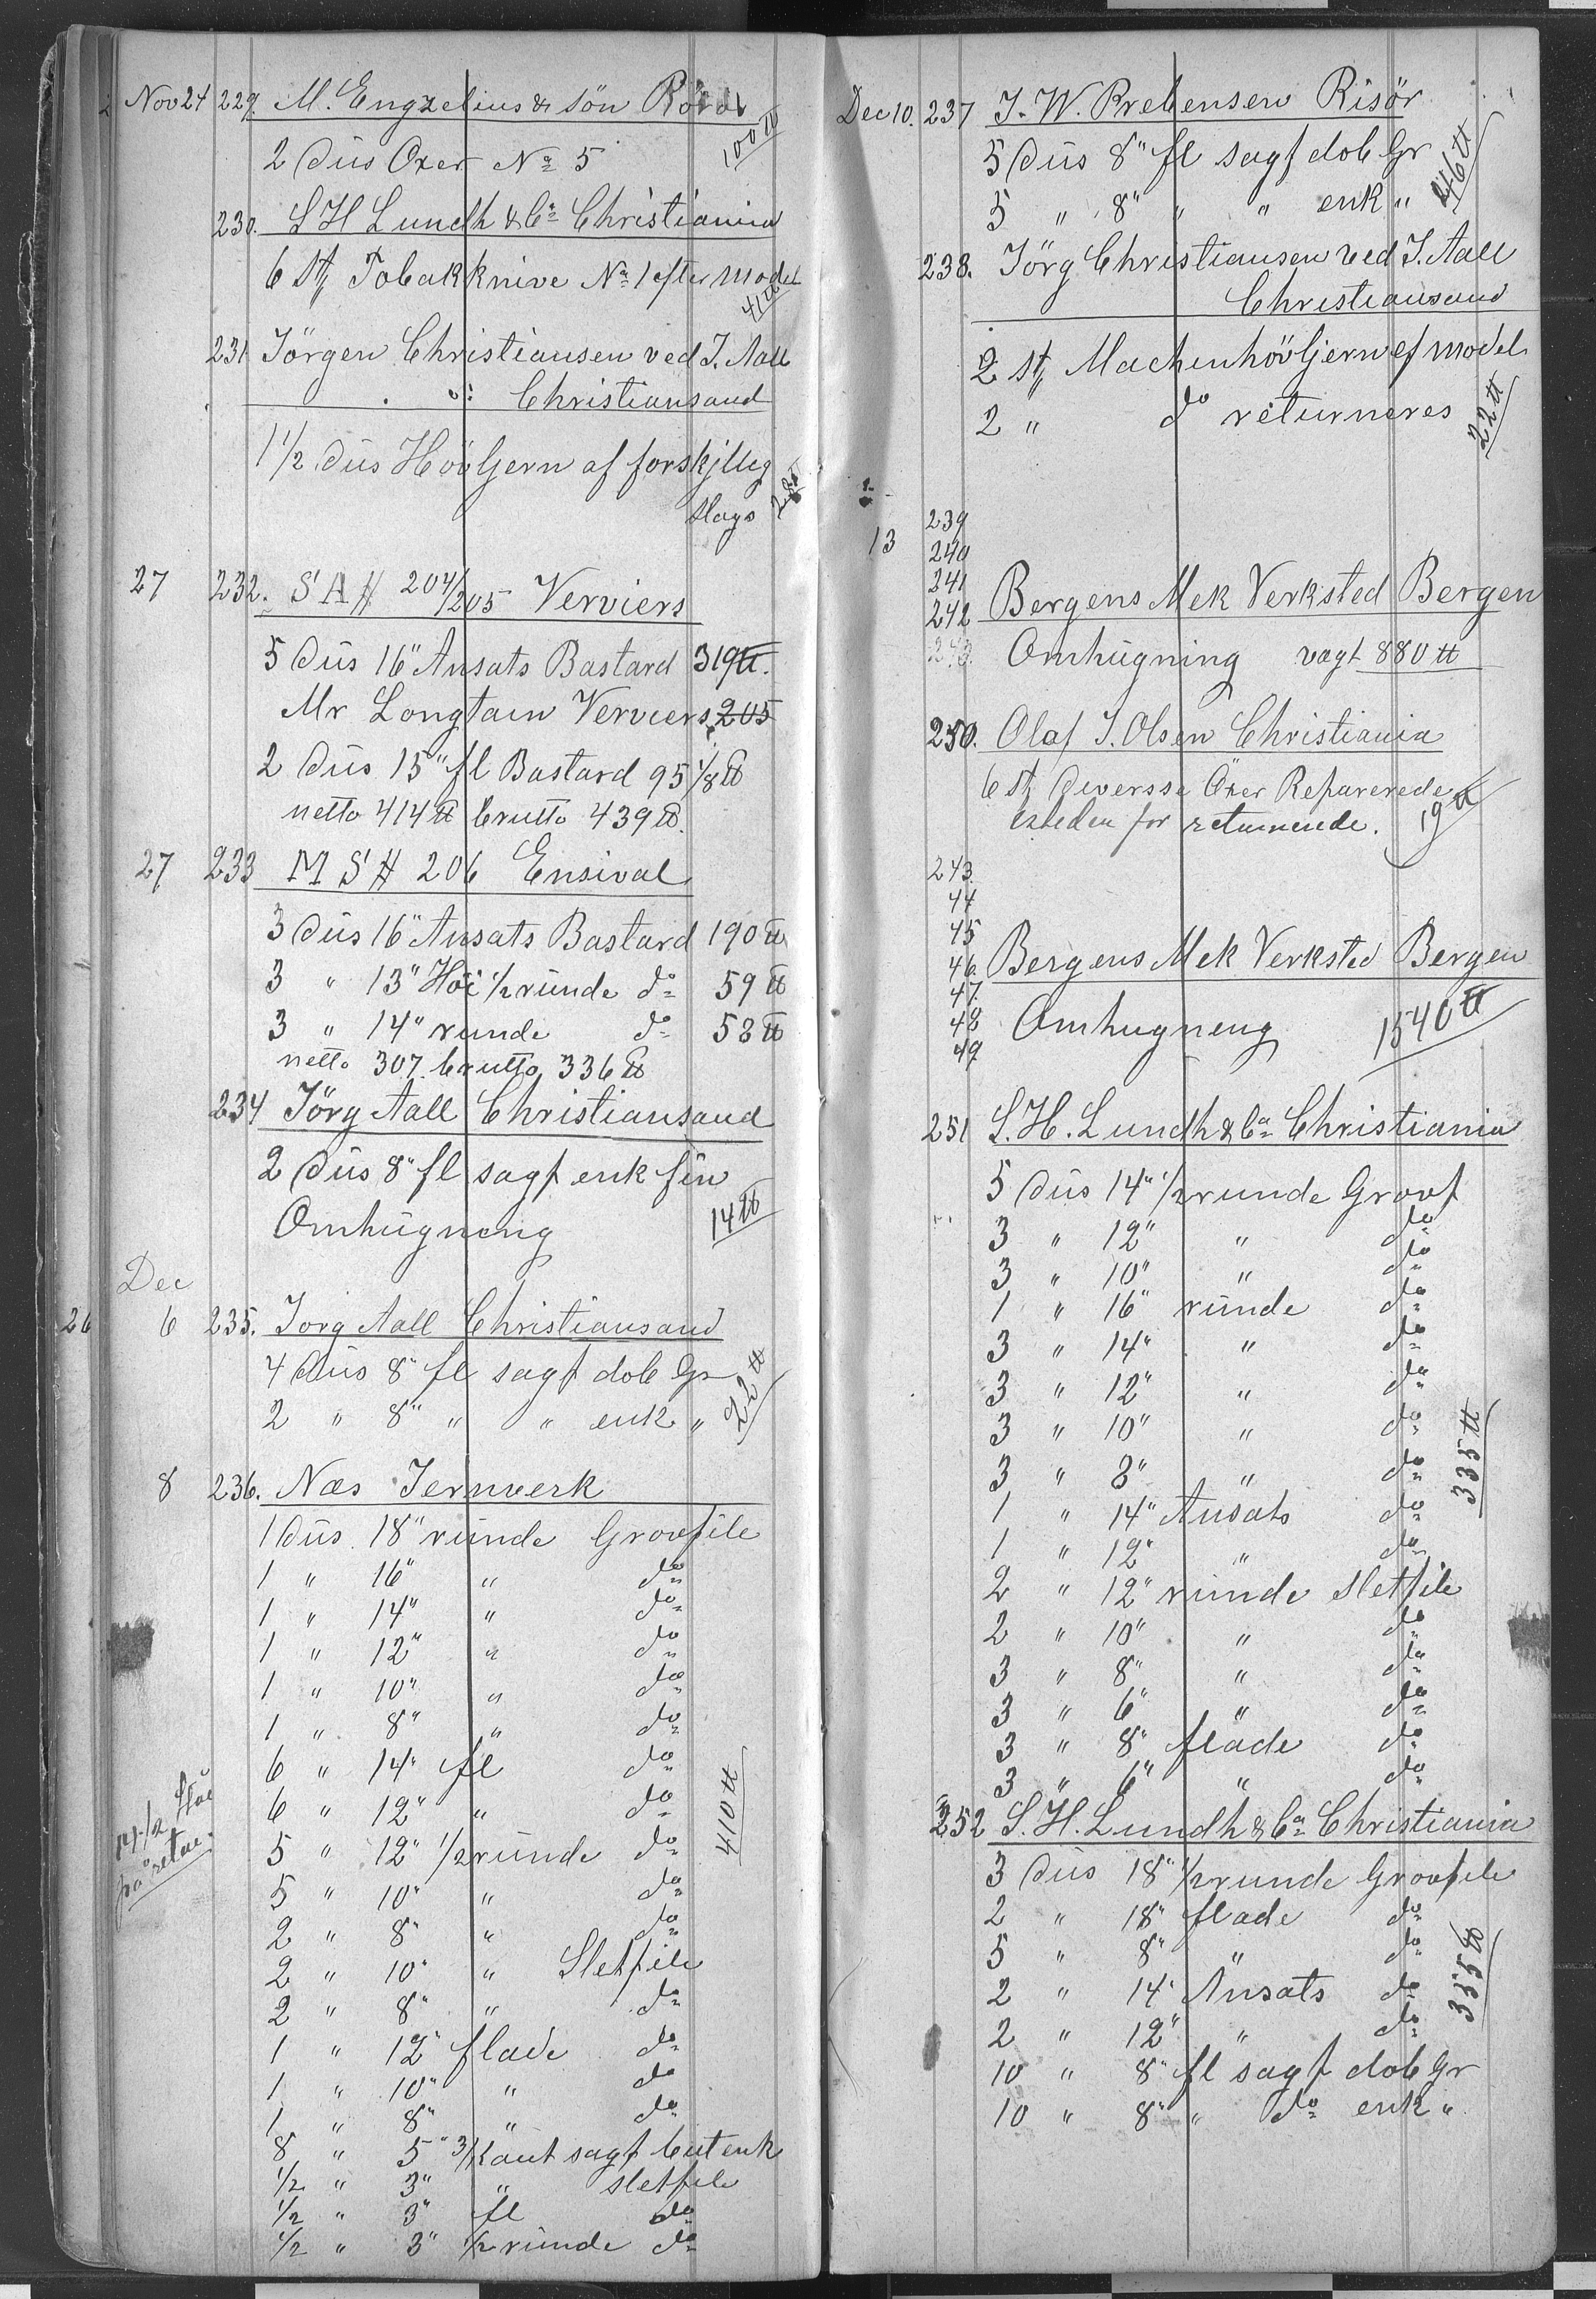 Nov 24 229. M. Engzelius & sön Röros
2 Düs Oxer No 5 100 ℔
230. S H Lundh & Co Christiania
6 St Tobakknive No 1 efter model
41 ℔
231 Jörgen Christiansen ved J. Aall
Christiansand
1 1/2 Düs Hövljern af forskjllig
Slags
27 232. S A H 204/205 Verviers
5 Düs 16" Ansats Bastard 319 ℔.
Mr Longtain Verviers 205
2 Düs 15" fl Bastard 95 1/8 ℔
netto 414 ℔ brutto 439 ℔.
27 233 M S H 206 Ensival
3 Düs 16" Ansats Bastard 190 ℔
3 " 13" Höi 1/2 runde do 59 ℔
3 " 14" runde do 58 ℔
netto 307. brutto 336 ℔
234 Jörg Aall Christiansand
2 Düs 8" fl sagf enk fin
Omhügning 14 ℔
Dec
26 6 235. Jorg Aall Christiansand
4 Düs 8" fl sagf dob Gr
2 " 8" " " enk " 22 ℔
8 236. Næs Jernverk
1 Düs. 18" runde Grovfile
1 " 16" " do
1 " 14" " do
1 " 12" " do
1 " 10" " do
1 " 8" " do
6 " 14" fl do
6 " 12" " do 410 ℔
5 " 12" 1/2 runde do
5 " 10" " do
2 " 8" " do
2 " 10" " Sletfile
2 " 8" " do
1 " 12" flade do
1 " 10" " do
1 " 8" " do
8 " 5" 3/Kant sagf but enk
1/2 " 3" " sletfile
1/2 " 3" fl do
1/2 " 3" 1/2 runde do
Dec 10. 237 J. W. Prebensen Risör
5 Düs 8" fl sagf dob Gr
5 " 8" " " enk " 46 ℔
238. Jörg Christiansen ved J. Aall
Christiansand
2 St Machenhövljern ef model
2 " do returneres 22 ℔
239
13 240
241
242 Bergens Mek Verksted Bergen
243. Omhügning vagt 880 ℔
250. Olaf J. Olsen Christiania
6 St Diversse Öxer Reparerede
for returnerede. 19 ℔
243
44
45
46 Bergens Mek Verksted Bergen
47
48 Omhugneng 1540 ℔
49
251 S. H. Lundh & Co Christiania
5 Düs 14" 1/2 runde Grovf
3 " 12" " do
3 " 10" " do
1 " 16" runde do
3 " 14" " do
3 " 12" " do
3 " 10" " do
3 " 8" " do 335 ℔
1 " 14" Ansats do
1 " 12" " do
2 " 12" runde Sletfile
2 " 10" " do
3 " 8" " do
3 " 6" " do
3 " 8" flade do
3 " 6" " do
252 S. H. Lundh & Co Christiania
3 Düs 18" 1/2 runde Grovfile
2 " 18" flade do
5 " 8" " do
2 " 14" Ansats do 335 ℔
2 " 12" " do
10 " 8" fl sagf dob Gr
10 " 8" " do enk "